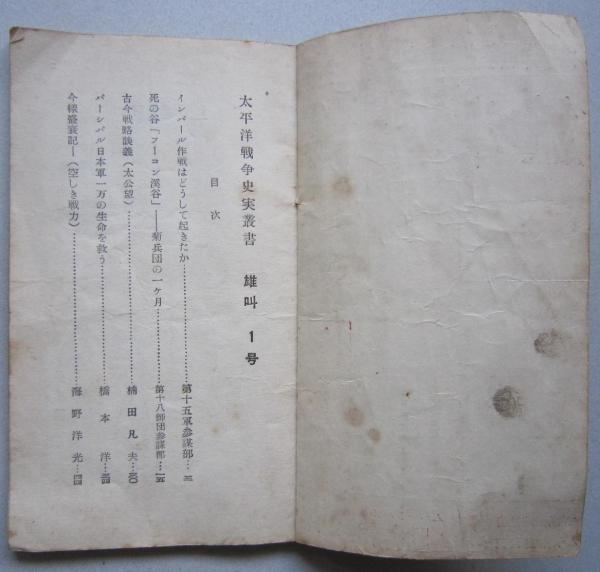 太平洋戦争史実叢書 雄叫 1号
目次
インパール作戦はどうして起きたか……………第十五軍参謀部…三
死の谷「フーコン渓谷」——菊兵団の一ケ月……………第十八師団参謀部…一五
古今戦略談義(太公望)……………楠田凡夫…三〇
パーシバル日本軍一万の生命を救う……………橋本洋…
今様盛衰記ー(空しき戦力)……………海野洋光…